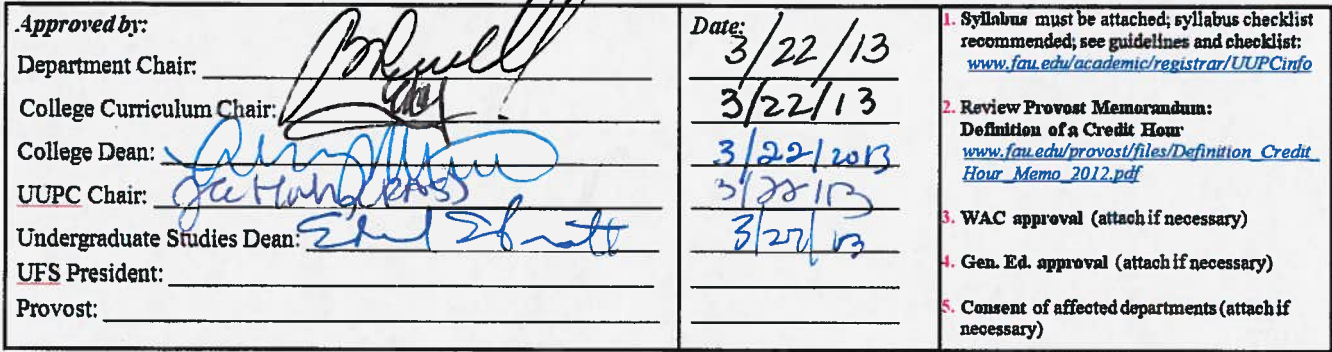 Approved by:
Department Chair:
College Curriculum Chair:
College Dean:
UUPC Chair:
Undergraduate Studies Dean:
UFS President:
Provost:
Date:
3/22/13
3/22/13
3/22/2013
3/22/13
3/27/13
1. Syllabus must be attached; syllabus checklist
recommended; see guidelines and checklist:
www.fau.edu/academic/registrar/UUPCinfo
2. Review Provost Memorandum:
Definition of a Credit Hour
www.fau.edu/provost/files/Definition_Credit_
Hour_Memo_2012.pdf
3. WAC approval (attach if necessary)
4. Gen. Ed. approval (attach if necessary)
5. Consent of affected departments (attach if
necessary)